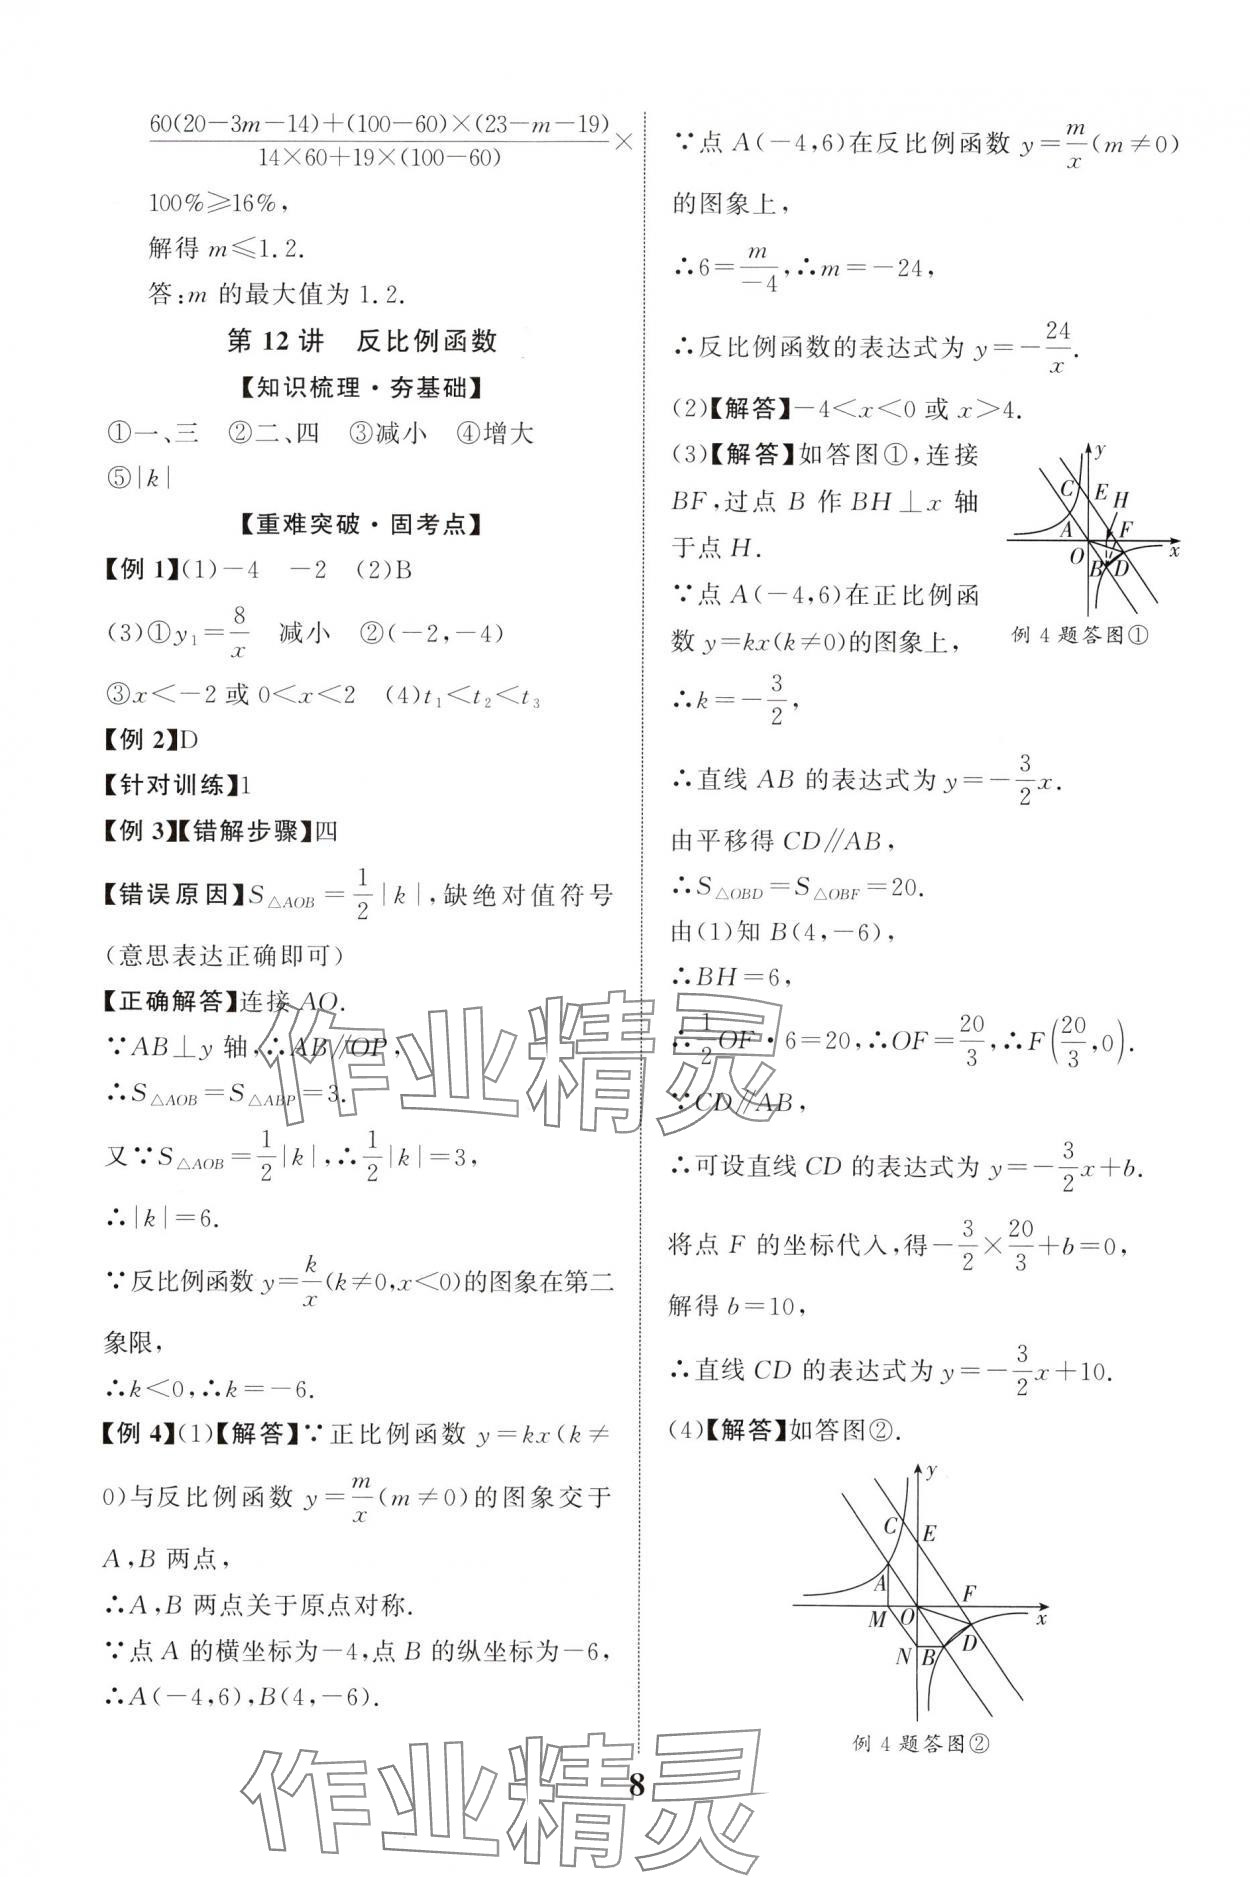 60(20-3m-14)+(100-60)×(23-m-19)/14×60+19×(100-60) ×
100%≥16%,
解得 m≤1.2.
答:m 的最大值为 1.2.
第 12 讲 反比例函数
【知识梳理·夯基础】
①一、三 ②二、四 ③减小 ④增大
⑤|k|
【重难突破·固考点】
【例 1】(1)-4 -2 (2)B
(3)①y₁=8/x 减小 ②(-2,-4)
③x<-2 或 0<x<2 (4)t₁<t₂<t₃
【例 2】D
【针对训练】1
【例 3】【错解步骤】四
【错误原因】S△AOB=1/2|k|,缺绝对值符号
(意思表达正确即可)
【正确解答】连接 AO.
∵AB⊥y 轴,∴AB∥OP,
∴S△AOB=S△ABP=3.
又∵S△AOB=1/2|k|,∴1/2|k|=3,
∴|k|=6.
∵反比例函数 y=k/x(k≠0,x<0)的图象在第二
象限,
∴k<0,∴k=-6.
【例 4】(1)【解答】∵正比例函数 y=kx(k≠
0)与反比例函数 y=m/x(m≠0)的图象交于
A,B 两点,
∴A,B 两点关于原点对称.
∵点 A 的横坐标为-4,点 B 的纵坐标为-6,
∴A(-4,6),B(4,-6).
∵点 A(-4,6)在反比例函数 y=m/x(m≠0)
的图象上,
∴6=m/-4,∴m=-24,
∴反比例函数的表达式为 y=-24/x.
(2)【解答】-4<x<0 或 x>4.
(3)【解答】如答图①,连接
BF,过点 B 作 BH⊥x 轴
于点 H.
∵点 A(-4,6)在正比例函
数 y=kx(k≠0)的图象上,
∴k=-3/2,
y
C E H
A F
O x
B D
例 4 题答图①
∴直线 AB 的表达式为 y=-3/2x.
由平移得 CD∥AB,
∴S△OBD=S△OBF=20.
由(1)知 B(4,-6),
∴BH=6,
∴1/2OF·6=20,∴OF=20/3,∴F(20/3,0).
∵CD∥AB,
∴可设直线 CD 的表达式为 y=-3/2x+b.
将点 F 的坐标代入,得-3/2×20/3+b=0,
解得 b=10,
∴直线 CD 的表达式为 y=-3/2x+10.
(4)【解答】如答图②.
y
C E
A F
M O x
N B D
例 4 题答图②
8
作业精灵
作业精灵